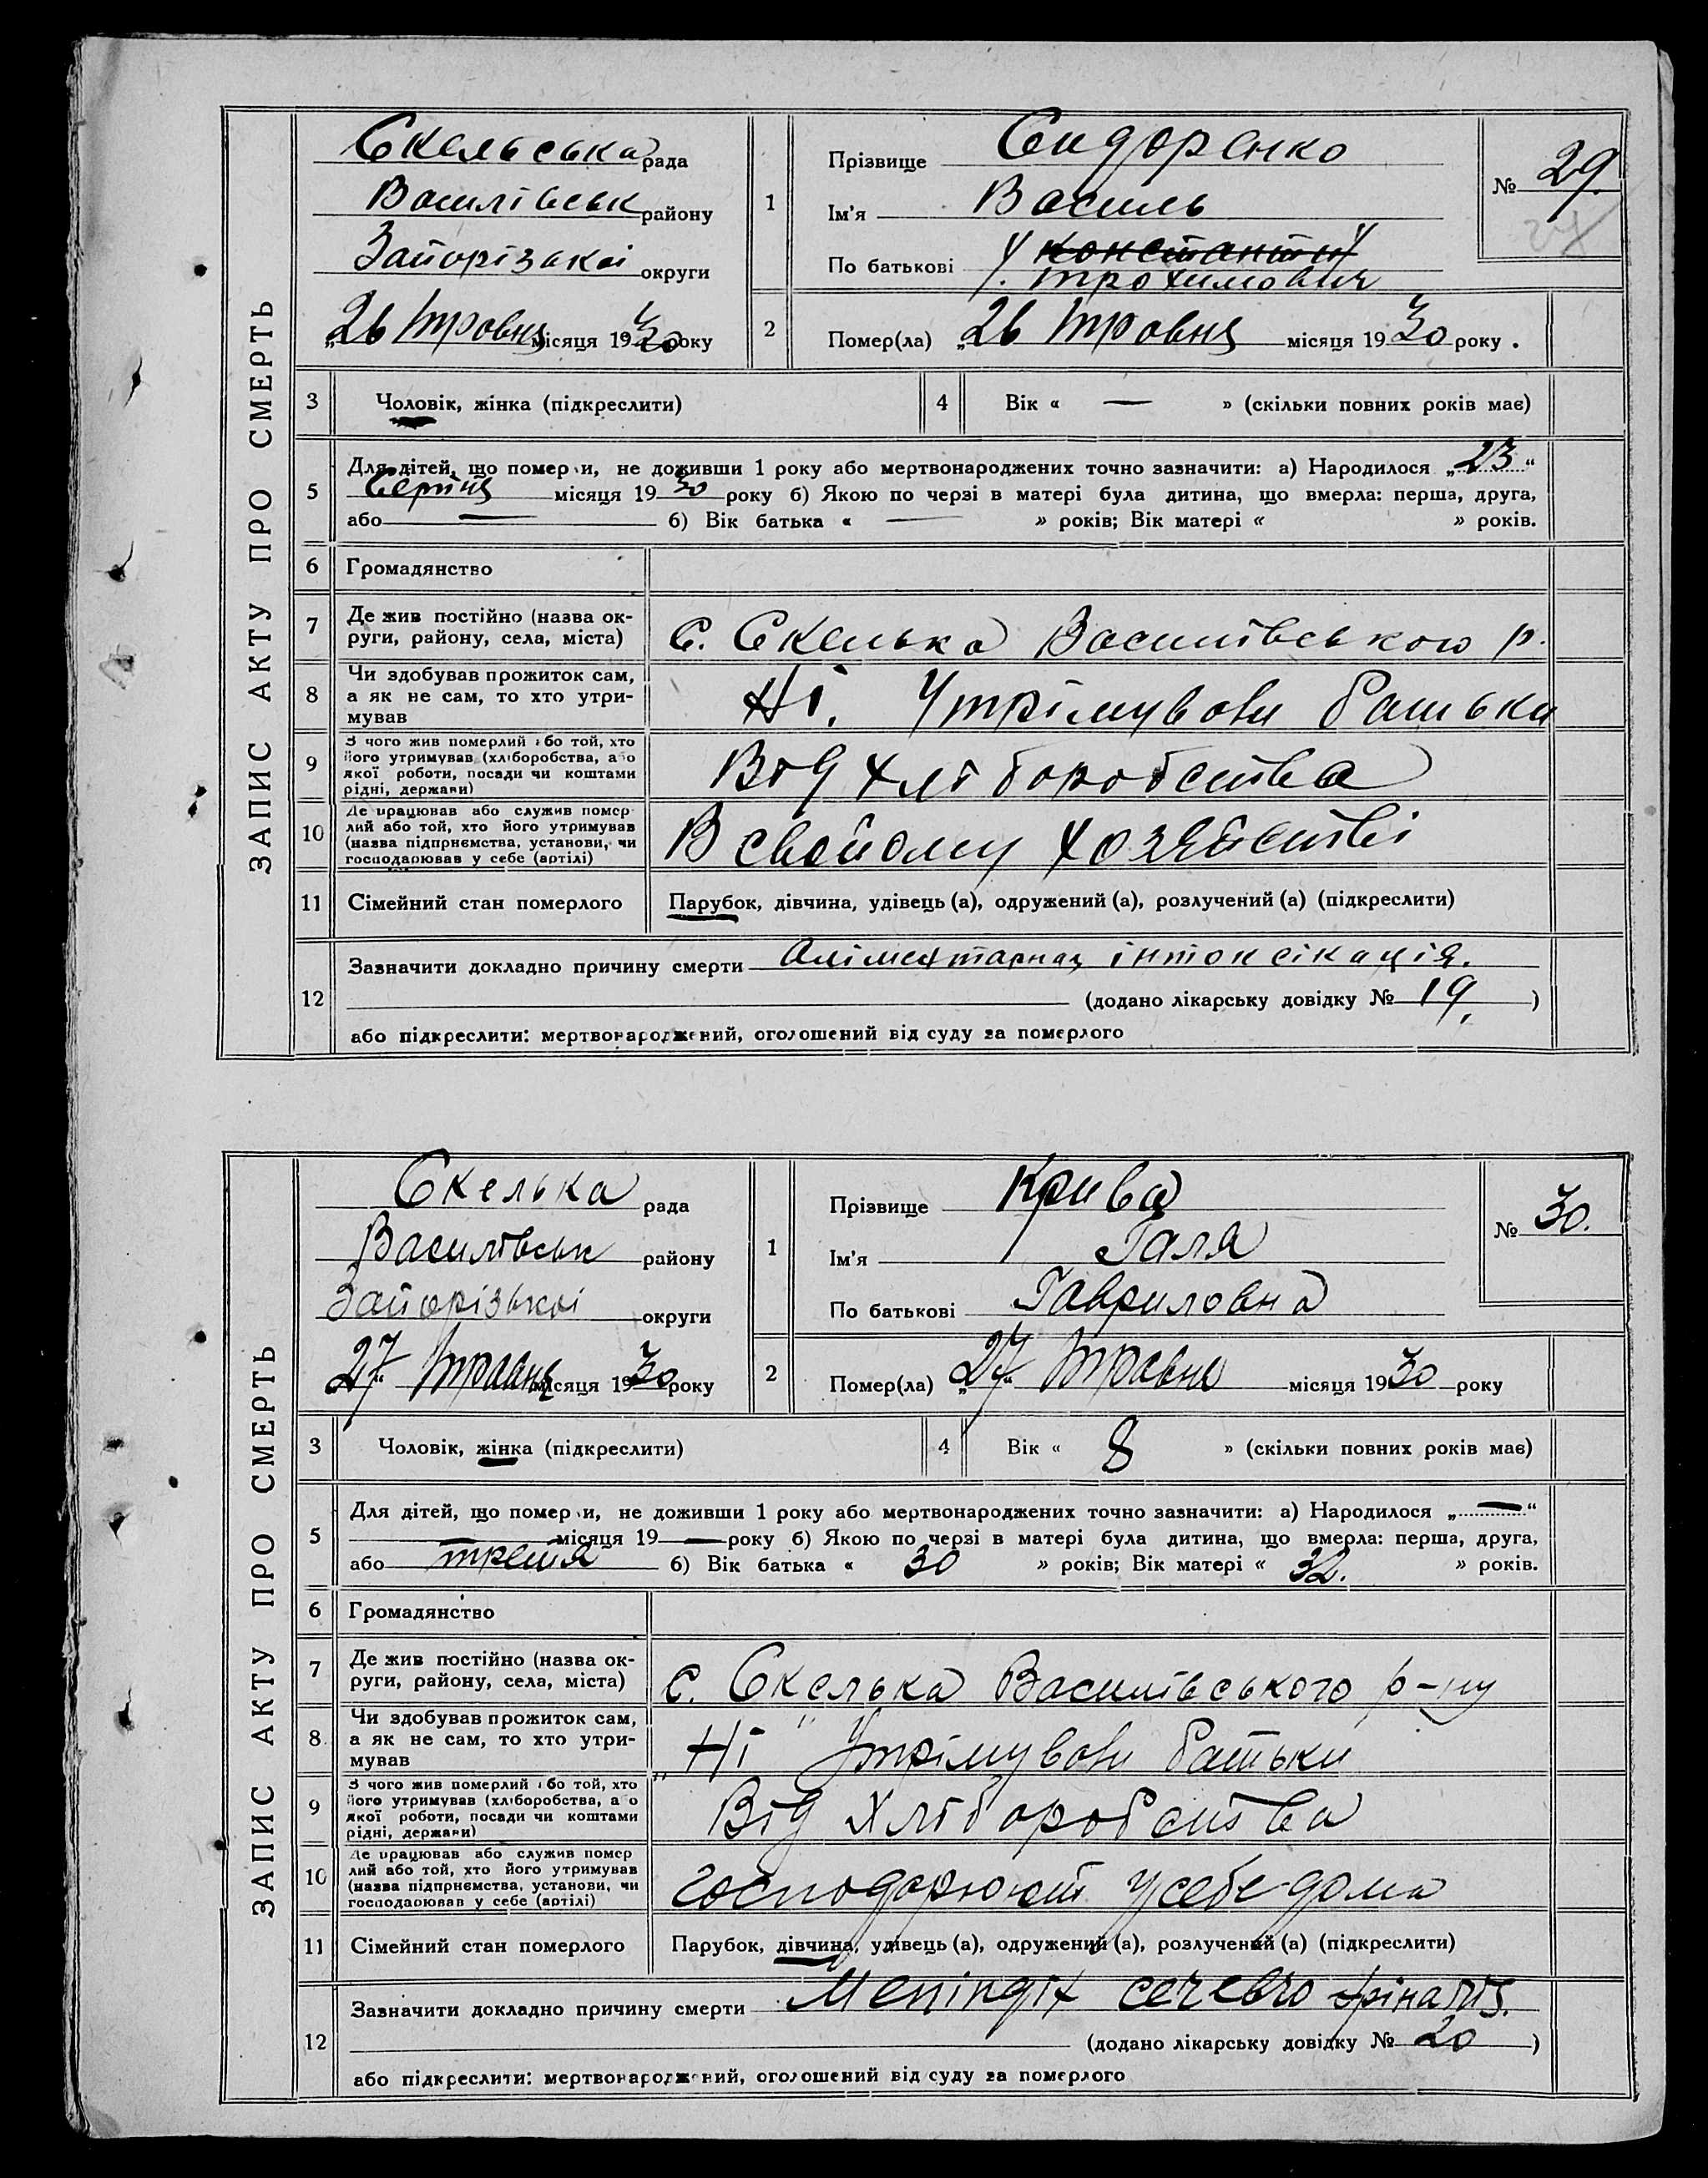 ЗАПИС АКТУ ПРО СМЕРТЬ
Скельська рада
Василівськ району
Запорізької округи
„26 травня місяця 1930 року
1
Прізвище Сидоренко
Ім'я Василь
По батькові Константин
Трохимович
№ 29.
2
Помер(ла) „26 травня місяця 1930 року.
3 Чоловік, жінка (підкреслити)
4 Вік « — » (скільки повних років має)
5 Для дітей, що померли, не доживши 1 року або мертвонароджених точно зазначити: а) Народилося „23“
Серпня місяця 1930 року б) Якою по черзі в матері була дитина, що вмерла: перша, друга,
або — б) Вік батька « — » років; Вік матері « » років.
6 Громадянство
7 Де жив постійно (назва округи, району, села, міста) с. Скелька Василівського р.
8 Чи здобував прожиток сам,
а як не сам, то хто утримував
Ні. Утрімували батьки
9 З чого жив померлий або той, хто
його утримував (хліборобства, або
якої роботи, посади чи коштами
рідні, держави)
Від хліборобства
10 Де працював або служив померлий або той, хто його утримував
(назва підприємства, установи, чи
господарював у себе (артілі)
В свойому хозяйстві
11 Сімейний стан померлого Парубок, дівчина, удівець (а), одружений (а), розлучений (а) (підкреслити)
12 Зазначити докладно причину смерти Аліментарная інтоксікація.
(додано лікарську довідку № 19. )
або підкреслити: мертвонароджений, оголошений від суду за померлого
ЗАПИС АКТУ ПРО СМЕРТЬ
Скелька рада
Василівськ району
Запорізької округи
„27“ травня місяця 1930 року
1
Прізвище Крива
Ім'я Галя
По батькові Гавриловна
№ 30.
2
Помер(ла) „27“ травня місяця 1930 року
3 Чоловік, жінка (підкреслити)
4 Вік « 8 » (скільки повних років має)
5 Для дітей, що померли, не доживши 1 року або мертвонароджених точно зазначити: а) Народилося „—“
місяця 19 — року б) Якою по черзі в матері була дитина, що вмерла: перша, друга,
або третя б) Вік батька « 30 » років; Вік матері « 32. » років.
6 Громадянство
7 Де жив постійно (назва округи, району, села, міста) с. Скелька Василівського р-ну
8 Чи здобував прожиток сам,
а як не сам, то хто утримував
„Ні“ Утрімували батьки
9 З чого жив померлий або той, хто
його утримував (хліборобства, або
якої роботи, посади чи коштами
рідні, держави)
Від хліборобства
10 Де працював або служив померлий або той, хто його утримував
(назва підприємства, установи, чи
господарював у себе (артілі)
господарюют у себе дома
11 Сімейний стан померлого Парубок, дівчина, удівець (а), одружений (а), розлучений (а) (підкреслити)
12 Зазначити докладно причину смерти
(додано лікарську довідку № 20 )
або підкреслити: мертвонароджений, оголошений від суду за померлого